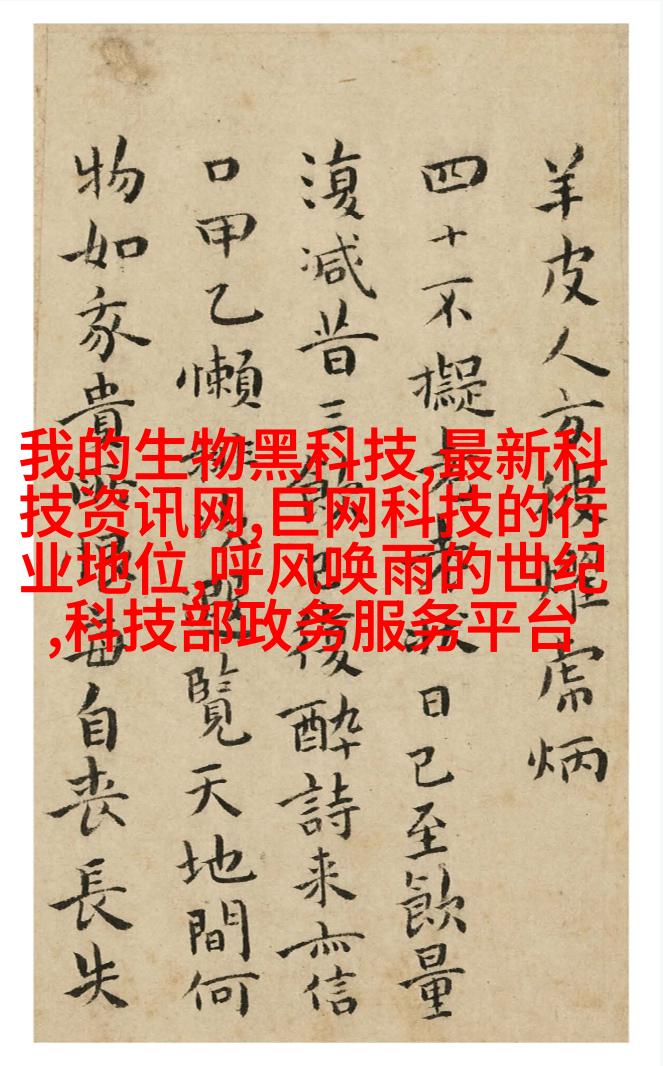 我的生物黑科技,最新科
技资讯网,巨网科技的行
业地位,呼风唤雨的世纪
,科技部政务服务平台
羊皮人方被炳
四十不擬老老日已至飲量
復減昔三復醉詩来亦信
口甲乙懶排次覽天地間何
物如我貴自喪長失